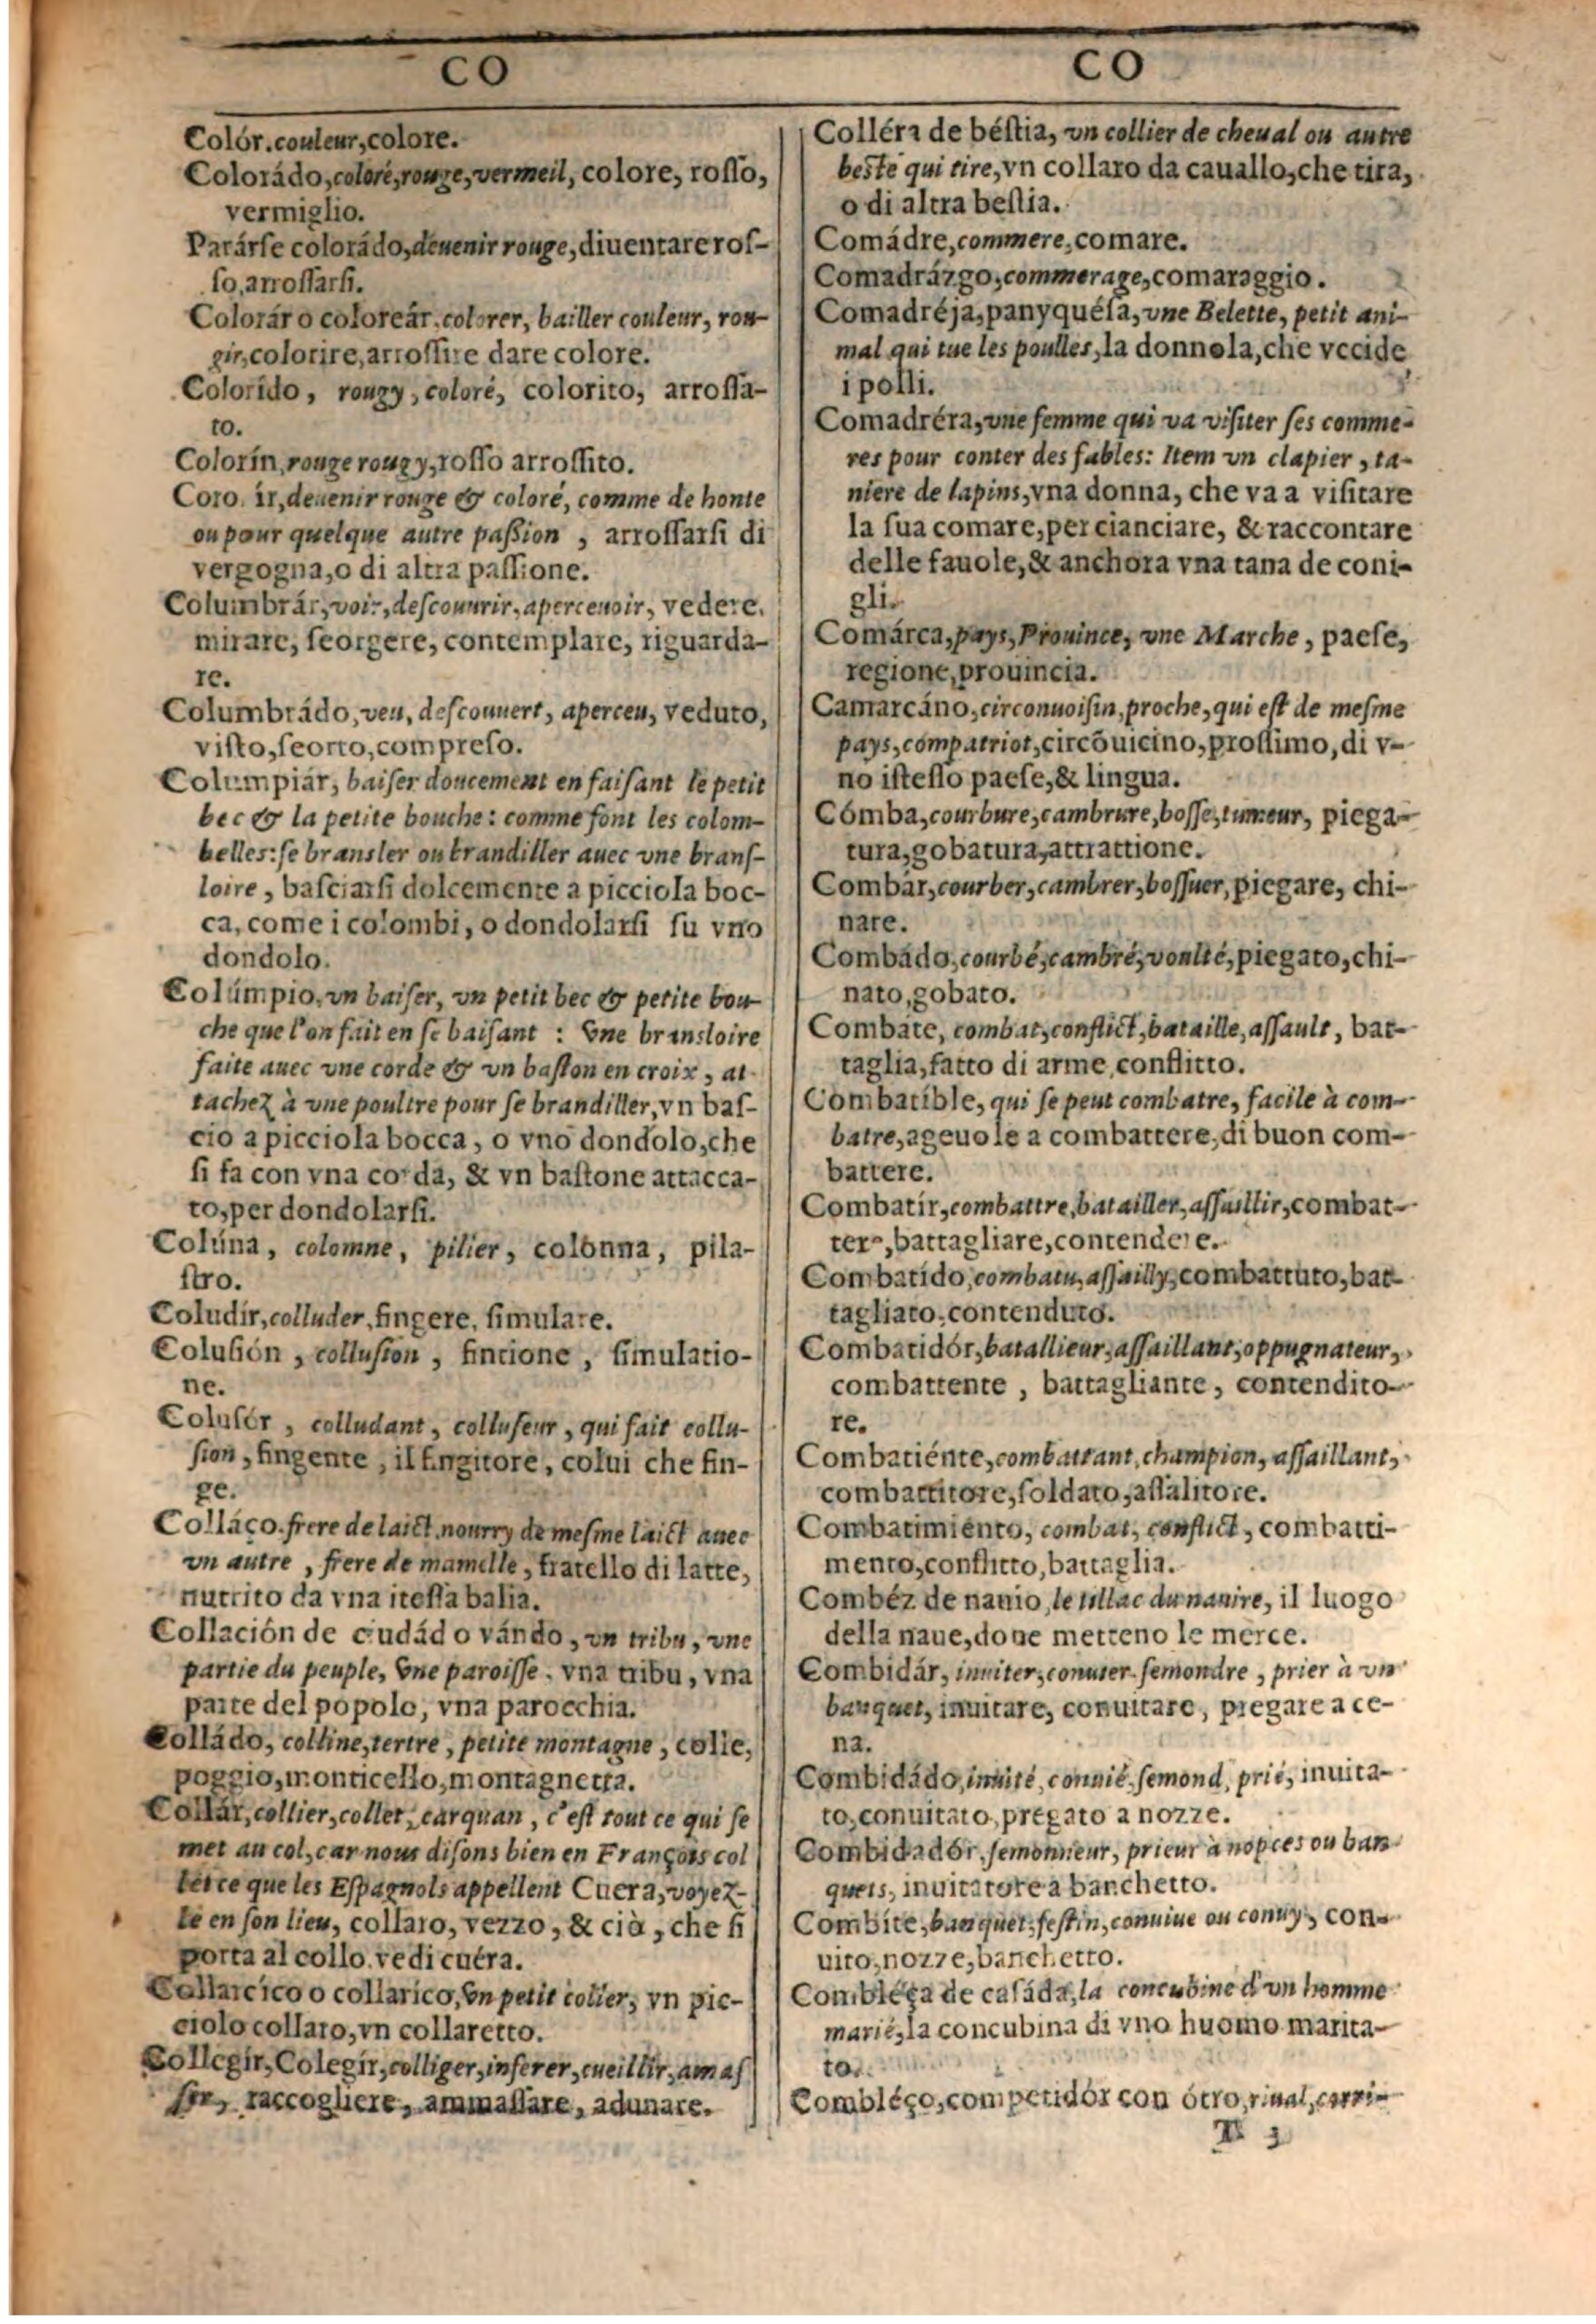 CO
Colór, couleur, colore.
Colorádo, coloré, rouge, vermeil, colore, roſſo,
vermiglio.
Parárſe colorádo, deuenir rouge, diuentare roſ-
ſo, arroſſarſi.
Colorár o coloreár, colorer, bailler couleur, rou-
gir, colorire, arroſſire dare colore.
Colorído, rougy, coloré, colorito, arroſſa-
to.
Colorín, rouge rougy, roſſo arroſſito.
Coro ír, deuenir rouge & coloré, comme de honte
ou pour quelque autre paſſion, arroſſarſi di
vergogna, o di altra paſſione.
Columbrár, voir, deſcouurir, aperceuoir, vedere,
mirare, ſeorgere, contemplare, riguarda-
re.
Columbrádo, veu, deſcouuert, aperceu, veduto,
viſto, ſeorto, compreſo.
Columpiár, baiſer doucement en faiſant le petit
bec & la petite bouche: comme font les colom-
belles: ſe branſler ou brandiller auec vne branſ-
loire, baſciarſi dolcemente a picciola boc-
ca, come i colombi, o dondolarſi ſu vno
dondolo.
Colúmpio, vn baiſer, vn petit bec & petite bou-
che que l'on fait en ſe baiſant : vne bransloire
faite auec vne corde & vn baſton en croix, at
tachez à vne poultre pour ſe brandiller, vn baſ-
cio a picciola bocca, o vno dondolo, che
ſi fa con vna corda, & vn baſtone attacca-
to, per dondolarſi.
Colúna, colomne, pilier, colonna, pila-
ſtro.
Coludír, colluder, fingere, ſimulare.
Coluſión, colluſion, fintione, ſimulatio-
ne.
Coluſór, colludant, colluſeur, qui fait collu-
ſion, fingente, il fingitore, colui che fin-
ge.
Colláço, frere de laict, nourry de meſme laict auec
vn autre, frere de mamelle, fratello di latte,
nutrito da vna iteſſa balia.
Collación de ciudád o vándo, vn tribu, vne
partie du peuple, vne paroiſſe, vna tribu, vna
parte del popolo, vna parocchia.
Colládo, colline, tertre, petite montagne, colle,
poggio, monticello, montagnetta.
Collár, collier, collet, carquan, c'eſt tout ce qui ſe
met au col, car nous diſons bien en François col
let ce que les Eſpagnols appellent Cuera, voyez-
le en ſon lieu, collaro, vezzo, & ciò, che ſi
porta al collo. vedi cuéra.
Collarcíco o collaríco, vn petit colier, vn pic-
ciolo collaro, vn collaretto.
Collegír, Colegír, colliger, inferer, cueillir, amaſ
ſer, raccogliere, ammaſſare, adunare.
CO
Colléra de béſtia, vn collier de cheual ou autre
beſte qui tire, vn collaro da cauallo, che tira,
o di altra beſtia.
Comádre, commere, comare.
Comadrázgo, commerage, comaraggio.
Comadréja, panyquéſa, vne Belette, petit ani-
mal qui tue les poulles, la donnola, che vccide
i polli.
Comadréra, vne femme qui va viſiter ſes comme-
res pour conter des fables: Item vn clapier, ta-
niere de lapins, vna donna, che va a viſitare
la ſua comare, per cianciare, & raccontare
delle fauole, & anchora vna tana de coni-
gli.
Comárca, pays, Prouince, vne Marche, paeſe,
regione, prouincia.
Camarcáno, circonuoiſin, proche, qui eſt de meſme
pays, compatriot, circõuicino, proſſimo, di v-
no iſteſſo paeſe, & lingua.
Cómba, courbure, cambrure, boſſe, tumeur, piega-
tura, gobatura, attrattione.
Combár, courber, cambrer, boſſuer, piegare, chi-
nare.
Combádo, courbé, cambré, voulté, piegato, chi-
nato, gobato.
Combáte, combat, conflict, bataille, aſſault, bat-
taglia, fatto di arme, conflitto.
Combatíble, qui ſe peut combatre, facile à com-
batre, ageuole a combattere, di buon com-
battere.
Combatír, combattre, batailler, aſſaillir, combat-
tere, battagliare, contendere.
Combatído, combatu, aſſailly, combattuto, bat-
tagliato, contenduto.
Combatidór, batallieur, aſſaillant, oppugnateur,
combattente, battagliante, contendito-
re.
Combatiénte, combattant, champion, aſſaillant,
combattitore, ſoldato, aſſalitore.
Combatimiénto, combat, conflict, combatti-
mento, conflitto, battaglia.
Combéz de nauio, le tillac du nauire, il luogo
della naue, doue metteno le merce.
Combidár, inuiter, conuier ſemondre, prier à vn
banquet, inuitare, conuitare, pregare a ce-
na.
Combidádo, inuité, conuié, ſemond, prié, inuita-
to, conuitato, pregato a nozze.
Combidadór, ſemonneur, prieur à nopces ou ban
quets, inuitatore a banchetto.
Combíte, banquet, feſtin, conuiue ou conuy, con-
uito, nozze, banchetto.
Combléça de caſáda, la concubine d'vn homme
marié, la concubina di vno huomo marita-
to.
Combléço, competidór con ótro, riual, corri-